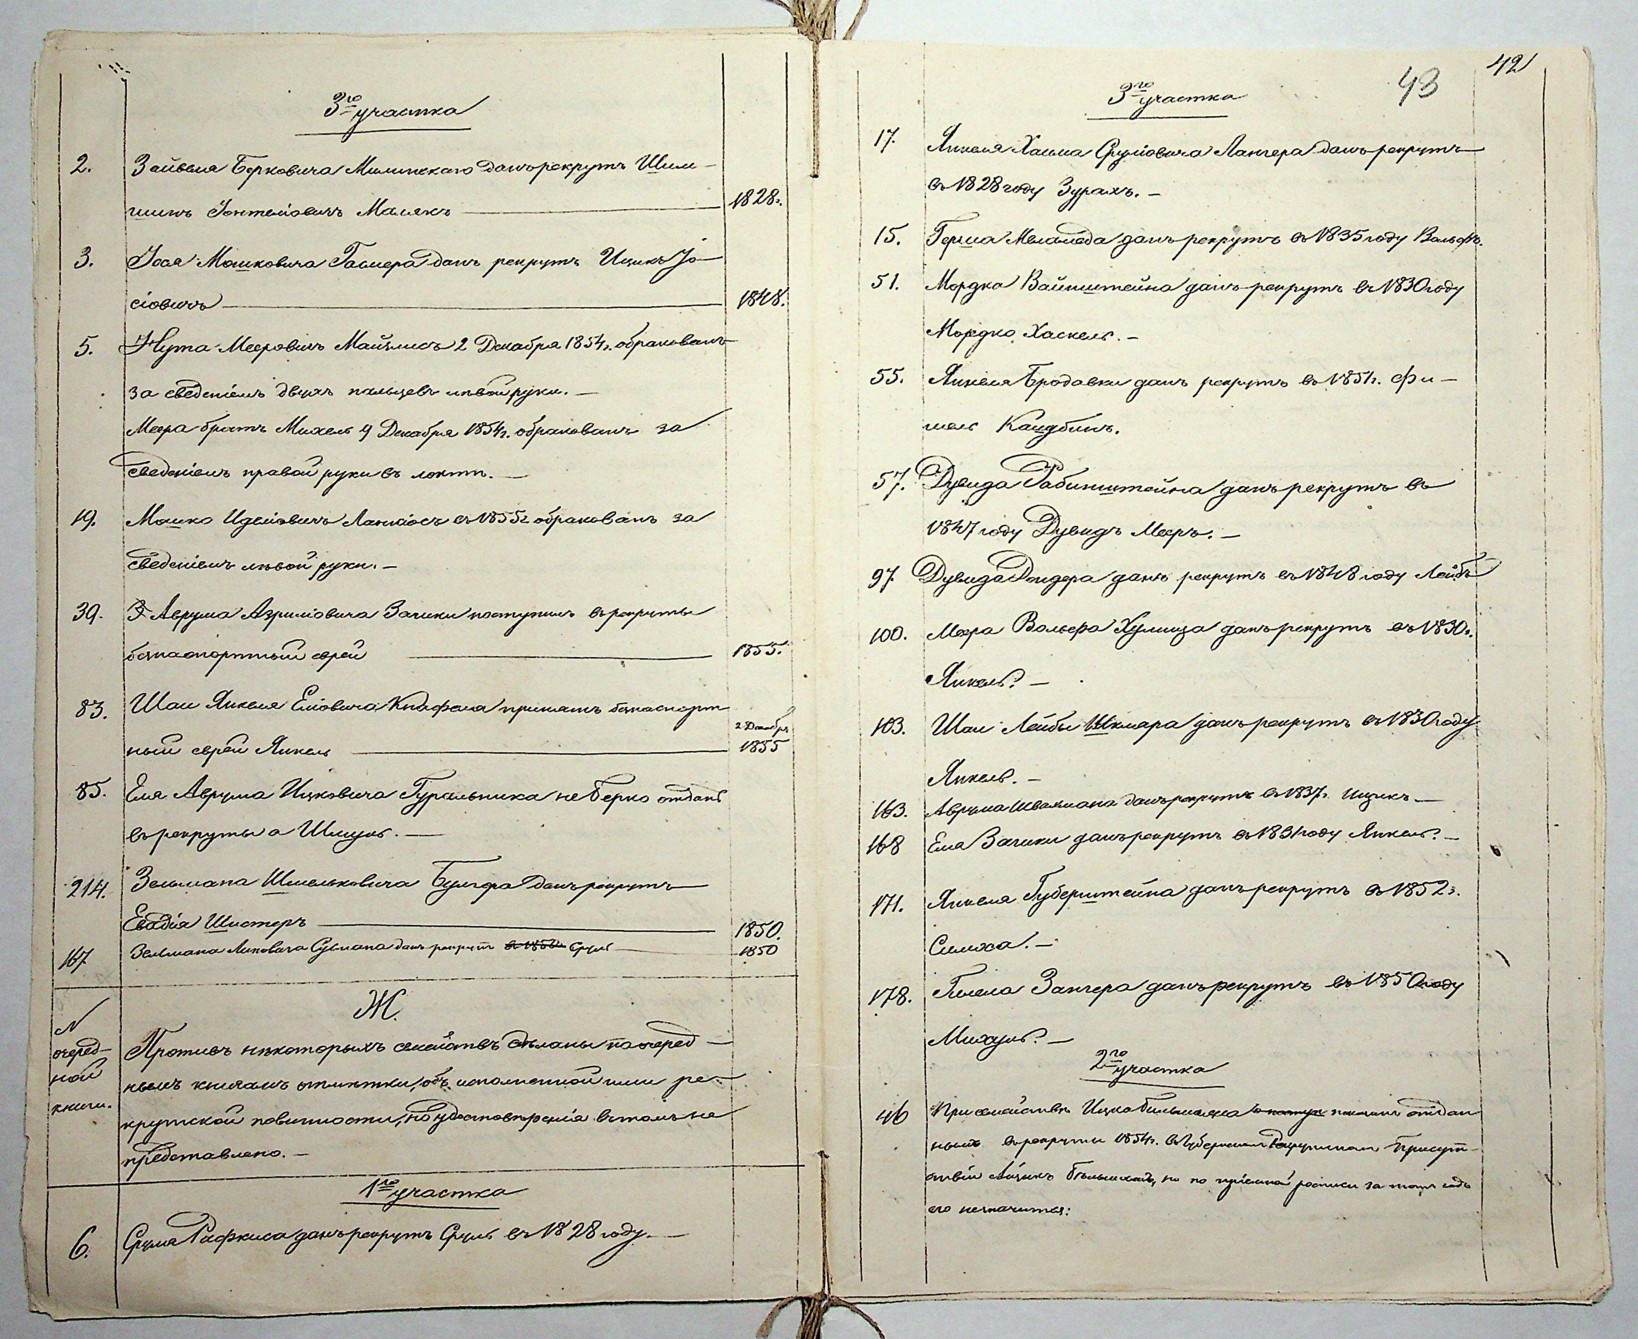 3го участка
2. Зейвеля Берковича Милинскаго данъ рекрутъ Шлим-
шинъ Іонтелiовичъ Малякъ 1828.
3. Іося Мошковича Гасмера данъ рекрутъ Ицикъ Іо-
сіовичъ 1848.
5. Нута Мееровичъ Майзлисъ 2 Декабря 1854г. обракованъ
за сведеніемъ двухъ пальцевъ лѣвой руки. —
Меера братъ Михель 9 Декабря 1854г. обракованъ за
сведеніемъ правой руки въ локтѣ. —
19. Мошко Иделіовичъ в 1855г обракованъ за
сведеніемъ лѣвой руки. —
39. Аврума Азриліовича Зачики поступилъ въ рекруты
безпаспортный еврей 1855.
83. Шаи Янкеля Еліовича Кнафеля принятъ безпаспорт
2 Декабря
ный еврей Янкель 1855
85. Еля Аврума Ицковича Гуральника не Берко отданъ
въ рекруты а Шмуль. —
214. Зельмана Шмельковича Бунгера данъ рекрутъ
Евадія Шистеръ 1850.
167 Зельмана Ликовича Сукмана данъ рекрутъ Сруль 1850
N
очеред-
ной
книги.
Ж.
Противъ нѣкоторыхъ семействъ сдѣланы по очеред-
нымъ книгамъ отмѣтки, объ исполненной ими ре-
крутской повинности, но удостовѣренія въ томъ не
представлено. —
1го участка
6. Срула Рафкиса данъ рекрутъ Сруль въ 1828 году. —
43
42
3го участка
17. Янкеля Хаима Сруліовича Лангера данъ рекрутъ
въ 1828 году Зурахъ. —
15. Герша Меламеда данъ рекрутъ въ 1835 году Вольфъ.
51. Мордка Вайнштейна данъ рекрутъ въ 1830 году
Мордко Хаскель. —
55. Янкеля Бродавки данъ рекрутъ въ 1851г. Фи-
шель Кацубинъ.
57. Дувида Рабинштейна данъ рекрутъ въ
1847 году Дувидъ Мееръ. —
97. Дувида Рондера данъ рекрутъ въ 1848 году Лейбъ
100. Меера Вольфа Хулища данъ рекрутъ въ 1830г.
Янкель. —
103. Шаи Лейбы Шкляра данъ рекрутъ въ 1830 году
Янкель. —
163. Аврума Швалмана данъ рекрутъ въ 1837г. Ицикъ. —
168 Еля Зачики данъ рекрутъ въ 1831 году Янкель. —
171. Янкеля Губерштейна данъ рекрутъ въ 1852г.
Симха. —
178. Гилела Зангера данъ рекрутъ въ 1850 году
Михуль. —
2го участка
46 При семействѣ Ицка показанъ отдан
нымъ въ рекруты 1854г. въ Губернскомъ Рекрутскомъ Присут-
ствіи Айзикъ но по пріемной росписи за тотъ годъ
его незначится: